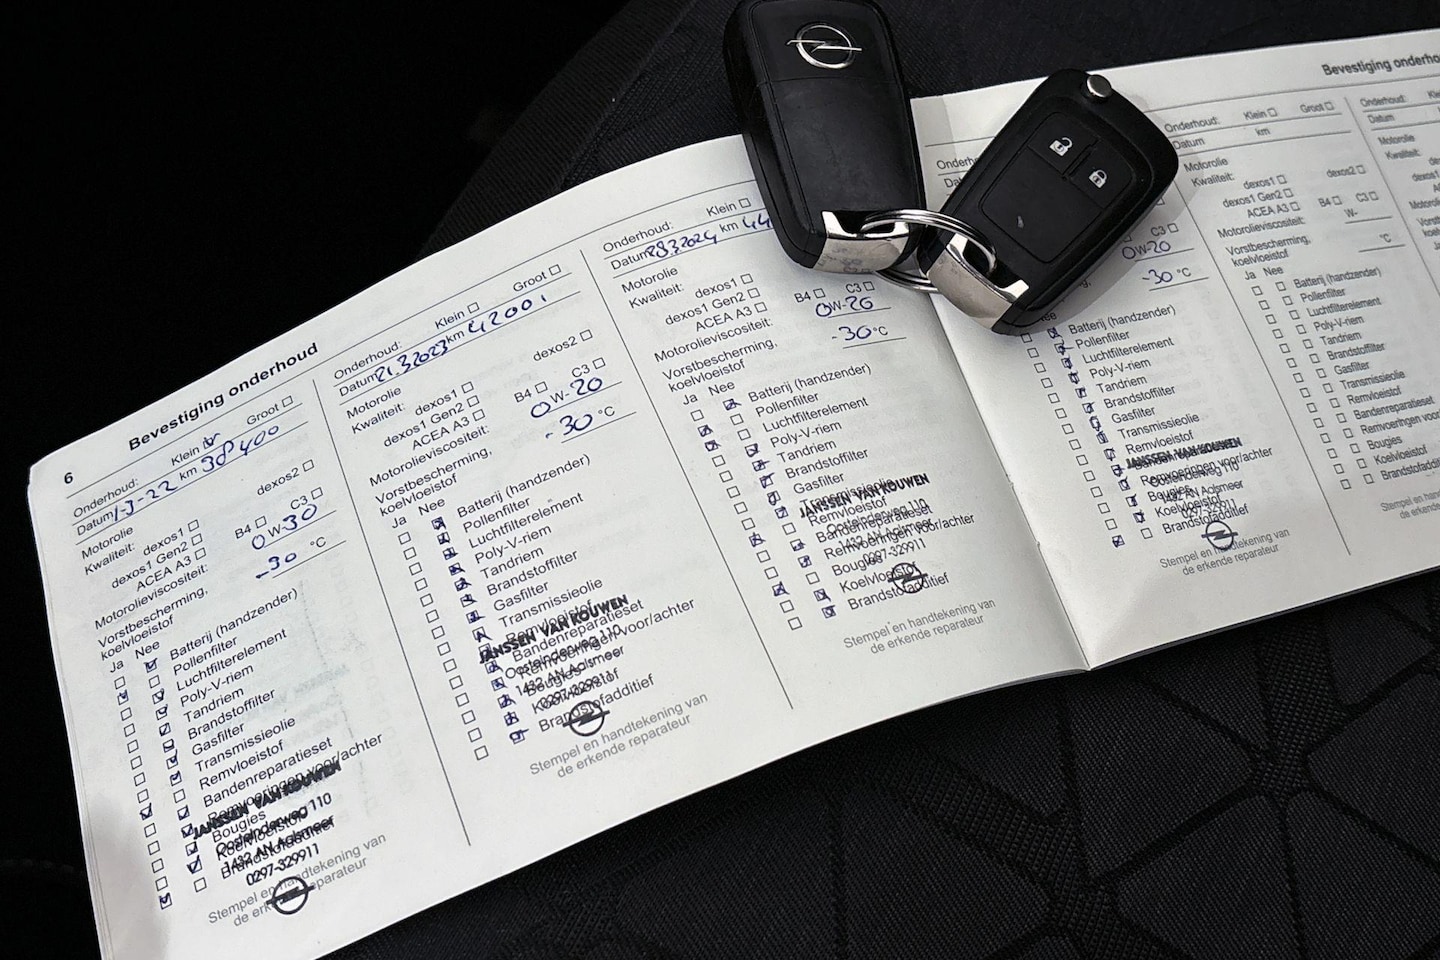 6
Bevestiging onderhoud
Onderhoud: Klein Groot
Datum 1-3-22 km 38400
Motorolie
Kwaliteit: dexos1 dexos2
dexos1 Gen2
ACEA A3 B4 C3
Motorolieviscositeit: 0W-30
Vorstbescherming, -30 °C
koelvloeistof
Ja Nee
Batterij (handzender)
Pollenfilter
Luchtfilterelement
Poly-V-riem
Tandriem
Brandstoffilter
Gasfilter
Transmissieolie
Remvloeistof
Bandenreparatieset
Remvoeringen voor/achter
Bougies
Koelvloeistof
Brandstofadditief
JANSSEN VAN KOUWEN
Oosteinderweg 110
1432 AN Aalsmeer
0297-329911
Stempel en handtekening van
de erkende reparateur
Onderhoud: Klein Groot
Datum 21.3.2023 km 42001
Motorolie
Kwaliteit: dexos1 dexos2
dexos1 Gen2
ACEA A3 B4 C3
Motorolieviscositeit: 0W-20
Vorstbescherming, -30 °C
koelvloeistof
Ja Nee
Batterij (handzender)
Pollenfilter
Luchtfilterelement
Poly-V-riem
Tandriem
Brandstoffilter
Gasfilter
Transmissieolie
Remvloeistof
Bandenreparatieset
Remvoeringen voor/achter
Bougies
Koelvloeistof
Brandstofadditief
JANSSEN VAN KOUWEN
Oosteinderweg 110
1432 AN Aalsmeer
0297-329911
Stempel en handtekening van
de erkende reparateur
Onderhoud: Klein
Datum 28.3.2024 km 44
Motorolie
Kwaliteit: dexos1
dexos1 Gen2
ACEA A3 B4 C3
Motorolieviscositeit: 0W-20
Vorstbescherming, -30 °C
koelvloeistof
Ja Nee
Batterij (handzender)
Pollenfilter
Luchtfilterelement
Poly-V-riem
Tandriem
Brandstoffilter
Gasfilter
Transmissieolie
Remvloeistof
Bandenreparatieset
Remvoeringen voor/achter
Bougies
Koelvloeistof
Brandstofadditief
JANSSEN VAN KOUWEN
Oosteinderweg 110
1432 AN Aalsmeer
0297-329911
Stempel en handtekening van
de erkende reparateur
C3
0W-20
-30 °C
Batterij (handzender)
Pollenfilter
Luchtfilterelement
Poly-V-riem
Tandriem
Brandstoffilter
Gasfilter
Transmissieolie
Remvloeistof
Remvoeringen voor/achter
Bougies
Koelvloeistof
Brandstofadditief
JANSSEN VAN KOUWEN
Oosteinderweg 110
1432 AN Aalsmeer
0297-329911
Stempel en handtekening van
de erkende reparateur
Onderhoud: Klein Groot
Datum km
Motorolie
Kwaliteit: dexos1 dexos2
dexos1 Gen2
ACEA A3 B4 C3
Motorolieviscositeit: W-
Vorstbescherming, °C
koelvloeistof
Ja Nee
Batterij (handzender)
Pollenfilter
Luchtfilterelement
Poly-V-riem
Tandriem
Brandstoffilter
Gasfilter
Transmissieolie
Remvloeistof
Bandenreparatieset
Bougies
Koelvloeistof
Onderhoud:
Datum
Motorolie
Kwaliteit: